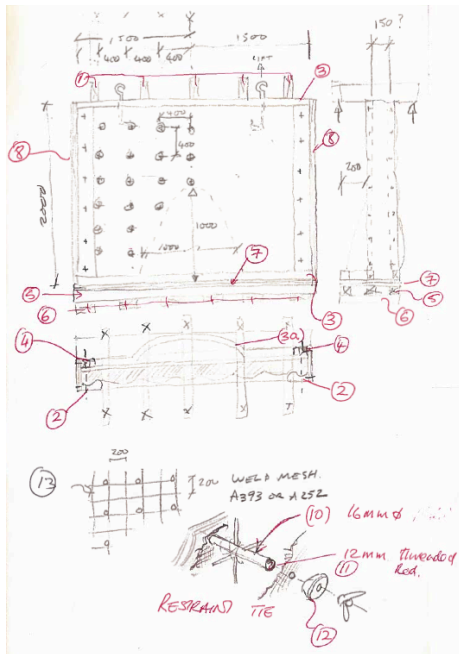 1500
1500
150?
400
400
400
LIFT
1
3
400
400
8
8
2000
200
1000
1000
7
7
5
5
6
6
3
3a
4
4
2
2
13
200
200
WELD MESH.
A393 OR A252
(10) 16mm ø
12mm threaded
11
Rod.
RESTRAINT TIE
12